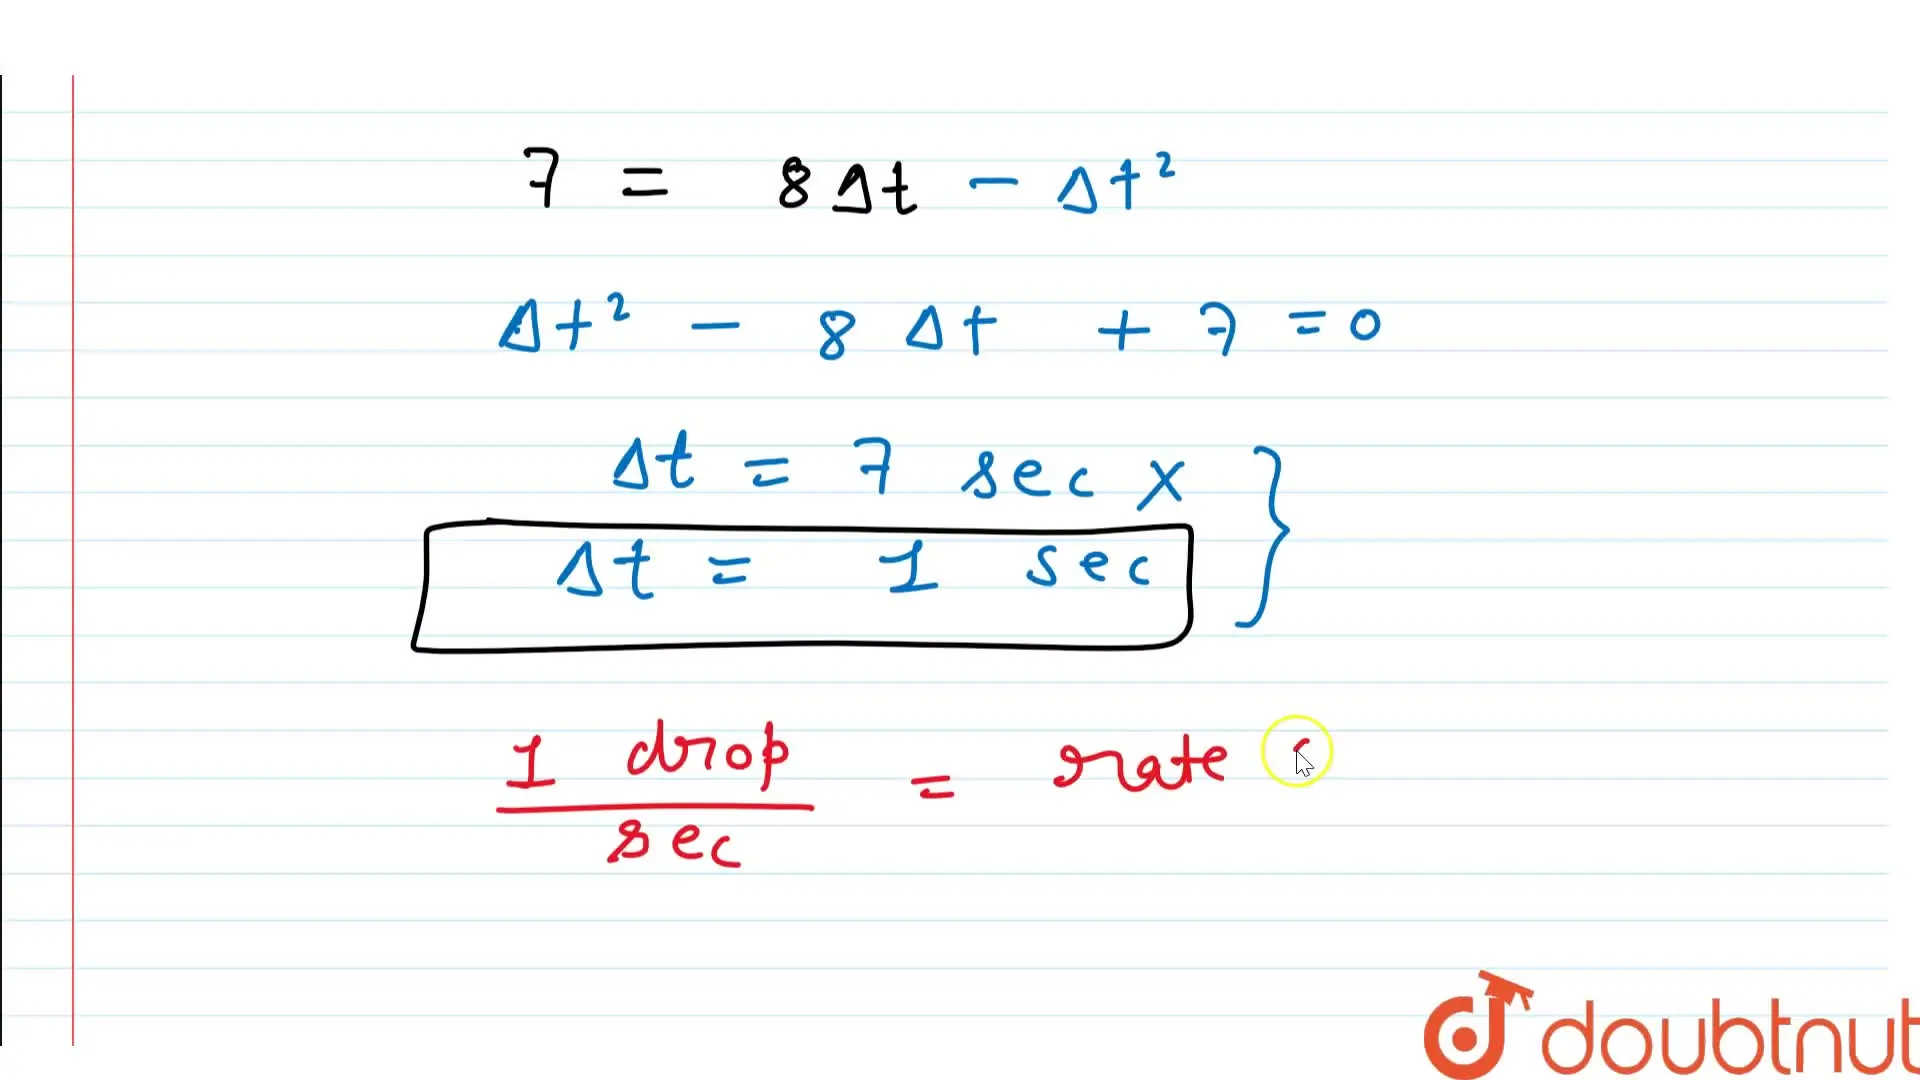 7 = 8Δt - Δt²
Δt² - 8 Δt + 7 = 0
Δt = 7 sec x
Δt = 1 sec
1 drop
sec
= rate
doubtnut